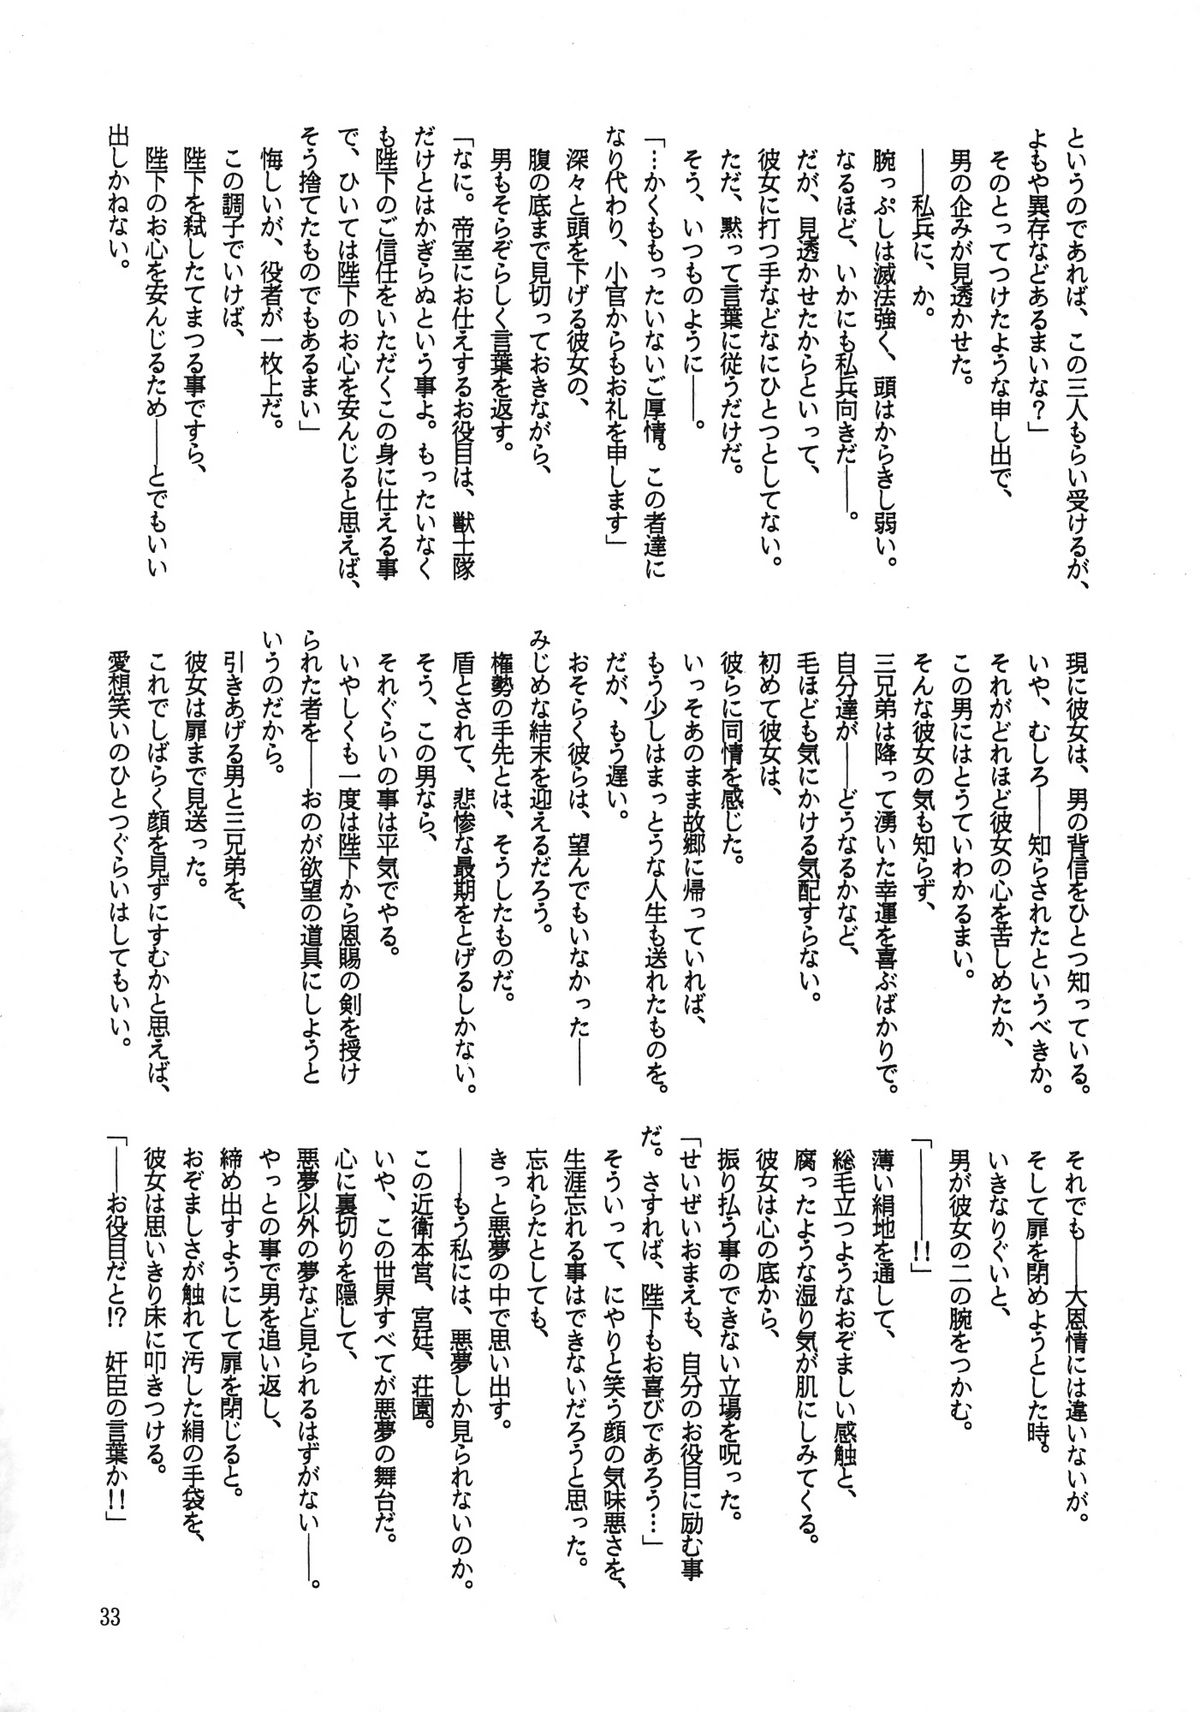 というのであれば、この三人もらい受けるが、
よもや異存などあるまいな？」
そのとってつけたような申し出で、
男の企みが見透かせた。
――私兵に、か。
腕っぷしは滅法強く、頭はからきし弱い。
なるほど、いかにも私兵向きだ――。
だが、見透かせたからといって、
彼女に打つ手などなにひとつとしてない。
ただ、黙って言葉に従うだけだ。
そう、いつものように――。
「…かくももったいないご厚情。この者達に
なり代わり、小官からもお礼を申します」
深々と頭を下げる彼女の、
腹の底まで見切っておきながら、
男もそらぞらしく言葉を返す。
「なに。帝室にお仕えするお役目は、獣士隊
だけとはかぎらぬという事よ。もったいなく
も陛下のご信任をいただくこの身に仕える事
で、ひいては陛下のお心を安んじると思えば、
そう捨てたものでもあるまい」
悔しいが、役者が一枚上だ。
この調子でいけば、
陛下を弑したてまつる事ですら、
陛下のお心を安んじるため――とでもいい
出しかねない。
現に彼女は、男の背信をひとつ知っている。
いや、むしろ――知らされたというべきか。
それがどれほど彼女の心を苦しめたか、
この男にはとうていわかるまい。
そんな彼女の気も知らず、
三兄弟は降って湧いた幸運を喜ぶばかりで。
自分達が――どうなるかなど、
毛ほども気にかける気配すらない。
初めて彼女は、
彼らに同情を感じた。
いっそあのまま故郷に帰っていれば、
もう少しはまっとうな人生も送れたものを。
だが、もう遅い。
おそらく彼らは、望んでもいなかった――
みじめな結末を迎えるだろう。
権勢の手先とは、そうしたものだ。
盾とされて、悲惨な最期をとげるしかない。
そう、この男なら、
それぐらいの事は平気でやる。
いやしくも一度は陛下から恩賜の剣を授け
られた者を――おのが欲望の道具にしようと
いうのだから。
引きあげる男と三兄弟を、
彼女は扉まで見送った。
これでしばらく顔を見ずにすむかと思えば、
愛想笑いのひとつぐらいはしてもいい。
それでも――大恩情には違いないが。
そして扉を閉めようとした時。
いきなりぐいと、
男が彼女の二の腕をつかむ。
「――――!!」
薄い絹地を通して、
総毛立つようなおぞましい感触と、
腐ったような湿り気が肌にしみてくる。
彼女は心の底から、
振り払う事のできない立場を呪った。
「せいぜいおまえも、自分のお役目に励む事
だ。さすれば、陛下もお喜びであろう…」
そういって、にやりと笑う顔の気味悪さを、
生涯忘れる事はできないだろうと思った。
忘れらたとしても、
きっと悪夢の中で思い出す。
――もう私には、悪夢しか見られないのか。
この近衛本営、宮廷、荘園。
いや、この世界すべてが悪夢の舞台だ。
心に裏切りを隠して、
悪夢以外の夢など見られるはずがない――。
やっとの事で男を追い返し、
締め出すようにして扉を閉じると。
おぞましさが触れて汚した絹の手袋を、
彼女は思いきり床に叩きつける。
「――お役目だと!?　奸臣の言葉か!!」
33